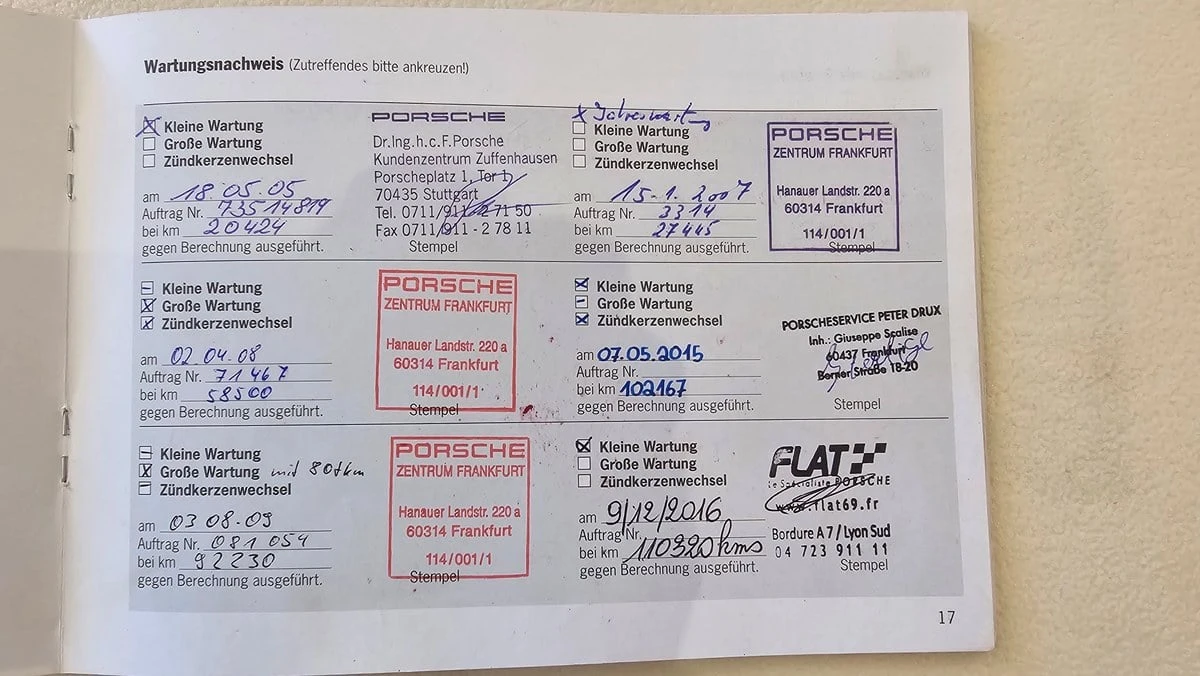 17
Wartungsnachweis (Zutreffendes bitte ankreuzen!)
Kleine Wartung
Große Wartung
Zündkerzenwechsel
am 18.05.05
Auftrag Nr. 73514819
bei km 20424
gegen Berechnung ausgeführt.
PORSCHE
Dr.Ing.h.c.F.Porsche
Kundenzentrum Zuffenhausen
Porscheplatz 1, Tor 1
70435 Stuttgart
Tel. 0711/911 - 2 71 50
Fax 0711/911 - 2 78 11
Stempel
x Jahreswartung
Kleine Wartung
Große Wartung
Zündkerzenwechsel
am 15-1. 2007
Auftrag Nr. 3314
bei km 27445
gegen Berechnung ausgeführt.
PORSCHE
ZENTRUM FRANKFURT
Hanauer Landstr. 220 a
60314 Frankfurt
114/001/1
Stempel
Kleine Wartung
Große Wartung
Zündkerzenwechsel
am 02.04.08
Auftrag Nr. 71467
bei km 58500
gegen Berechnung ausgeführt.
PORSCHE
ZENTRUM FRANKFURT
Hanauer Landstr. 220 a
60314 Frankfurt
114/001/1
Stempel
Kleine Wartung
Große Wartung
Zündkerzenwechsel
am 07.05.2015
Auftrag Nr.
bei km 102167
gegen Berechnung ausgeführt.
PORSCHESERVICE PETER DRUX
Inh.: Giuseppe Scalise
60437 Frankfurt
Berner Straße 18-20
Stempel
Kleine Wartung
Große Wartung mit 80tkm
Zündkerzenwechsel
am 03 08.09
Auftrag Nr. 081 054
bei km 92230
gegen Berechnung ausgeführt.
PORSCHE
ZENTRUM FRANKFURT
Hanauer Landstr. 220 a
60314 Frankfurt
114/001/1
Stempel
Kleine Wartung
Große Wartung
Zündkerzenwechsel
am 9/12/2016
Auftrag Nr.
bei km 110320 kms
gegen Berechnung ausgeführt.
FLAT
Le Spécialiste PORSCHE
www.flat69.fr
Bordure A7 / Lyon Sud
04 723 911 11
Stempel
17